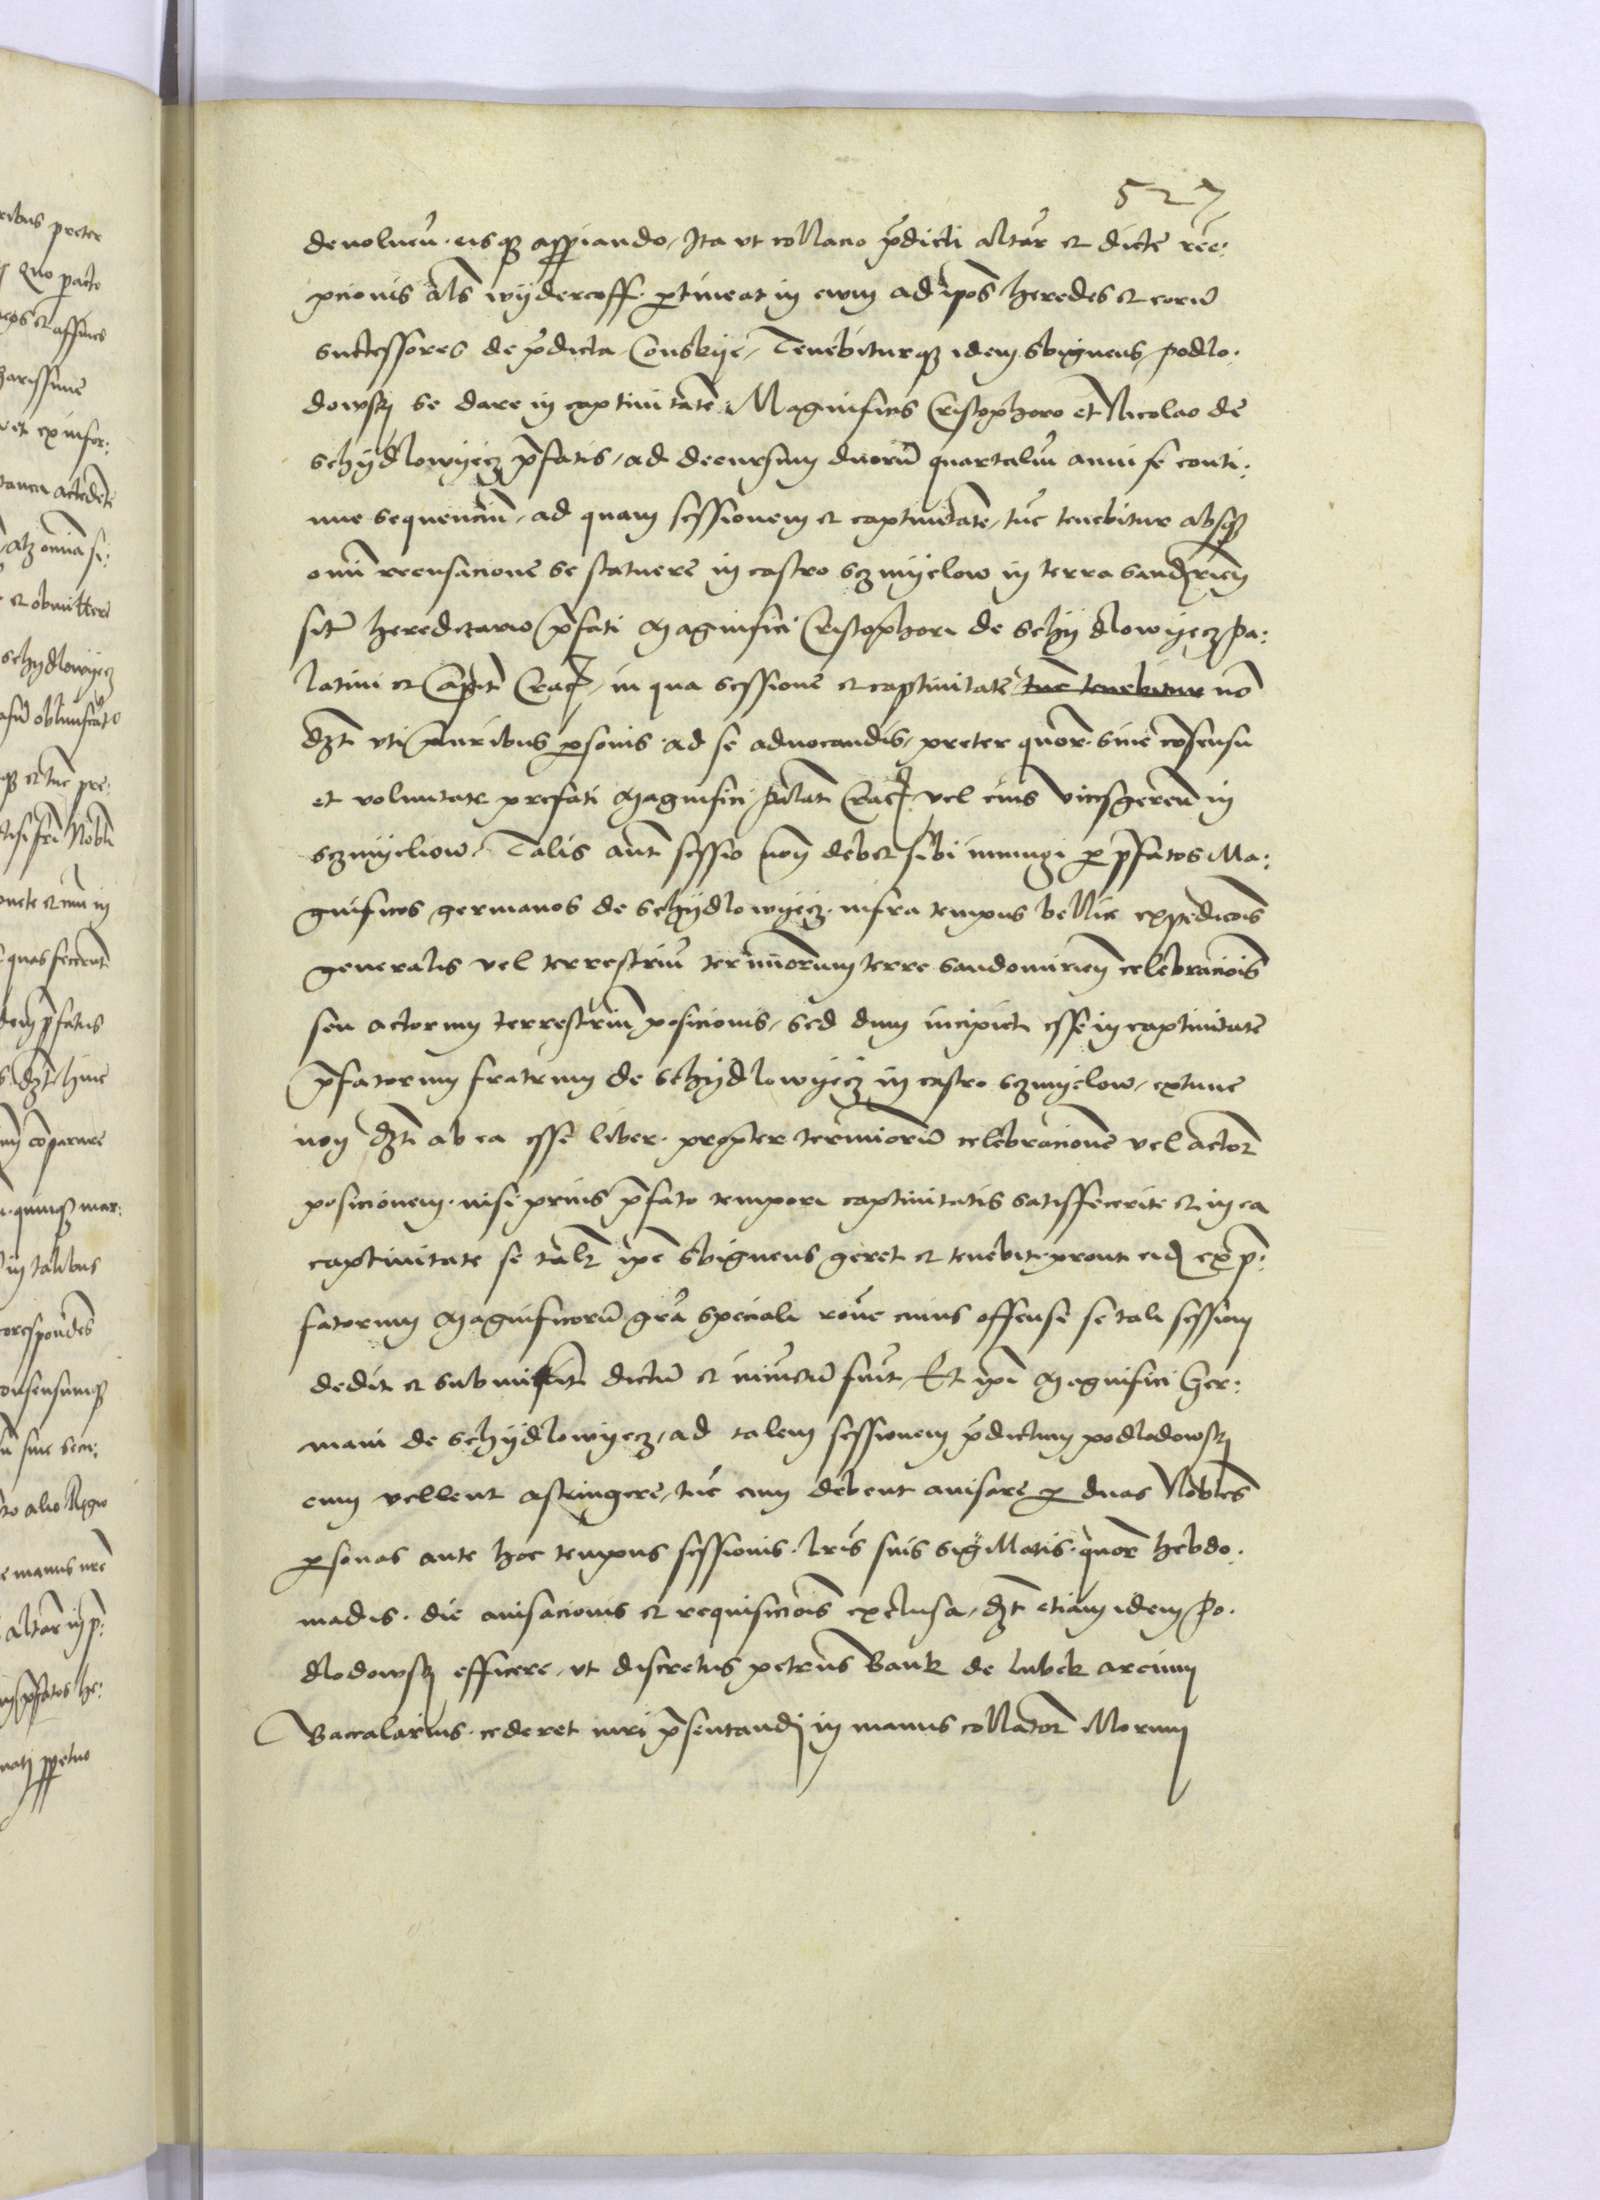 527
devolveñ. eisqз app̱iando, Ita vt collacio p̃dicti altar̃ et dicte ree:
pcionis als̃ wÿdercoff. ꝑtineat in ewm ad ip̃os heredes et eorũ
successores de p̃dicta Conskÿe, Tenebiturqз idem Sbigneus podlo:
dowsky se dare in captiuitatẽ Magnificis Cristophoro et Nicolao de
Schÿdlowÿecz p̃fatis, ad decursum duorũ quartaliũ anni se conti:
nue sequenciũ, ad quam sessionem et captiuitatẽ, tũc tenebitur absqз
omni recusacione se statuere in castro Sczmÿelow in terra Sandomirieñ
sitũ hereditario p̃fati Magnifici Cristophori de Schÿdlowÿecz Pa:
latini et Capit̃ Crac̃, in qua sessione et captiuitate tunc tenebitur nõ
dз̃t vti pluribus ꝑsonis ad se aduocandis, preter quor̃ sine cõsensu
et voluntate prefati Magnifici Palat̃ Crac̃ vel eius vicesgereñ in
Sczmÿeliow. Talis aut̃ sessio non debet sibi iniungi ꝑ p̃fatos Ma:
gnificos germanos de Schÿdlowÿecz. infra tempus bellice expedicõis
generalis vel terrestriũ terminorum terre Sandomirieñ celebraciõis
seu actorum terrestriũ posicionis, Sed dum incipiet esse in captiuitate
p̃fatorum fratrum de Schÿdlowÿecz in castro Sczmÿelow, extunc
non dз̃t ab ea esse liber. propter terminorũ celebracionẽ vel actor̃
posicionem. nisi prius p̃fato tempori captiuitatis satisfecerit et in ea
captiuitate se talr̃ ip̃e Sbigneus geret et tenebit prout eid̃ ex p̃:
fatorum Magnificorũ gr̃a speciali rõne cuius offense se tali sessioni
dedit et submisit dictũ et iniunctũ fuit, Et ip̃i Magnifici Ger:
mani de Schÿdlowÿecz, ad talem sessionem p̃dictum podlodowsky
cum vellent astringere, tũc eum debent auisare ꝑ duas Nobiles
ꝑsonas ante hoc tempus sessionis. lr̃is suis sigillatis. quor̃ hebdo:
madis. die auisacionis et requisiciõis exclusa, dз̃t etiam idem Po:
dlodowsky efficere, vt discretus petrus Bank de lubek arcium
Baccalarius. cederet iuri p̃sentandi in manus collator̃ illorum